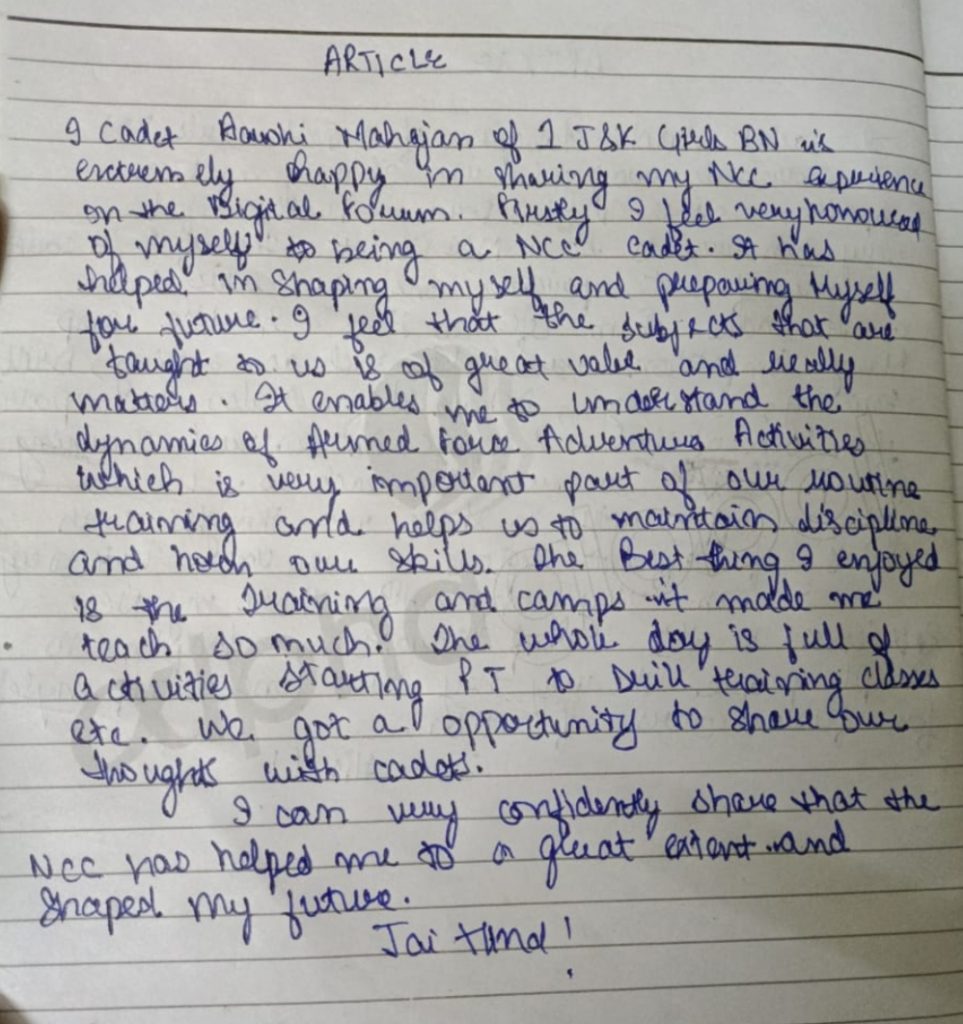 ARTICLE
I Cadet Aarohi Mahajan of 1 J&K Girls BN is
extremely happy in sharing my NCC experience
on the Digital Forum. Firstly I feel very honoured
of myself to being a NCC cadet. It has
helped in shaping myself and preparing Myself
for future. I feel that the subjects that are
taught to us is of great value and really
matters. It enables me to understand the
dynamics of Armed Force Adventure Activities
which is very important part of our routine
training and helps us to maintain discipline
and our skills. The Best thing I enjoyed
is the Training and camps it made me
teach so much. The whole day is full of
activities starting PT to Drill training classes
etc. We got a opportunity to share our
thoughts with cadets.
I can very confidently share that the
NCC has helped me to a great extent and
shaped my future.
Jai Hind!